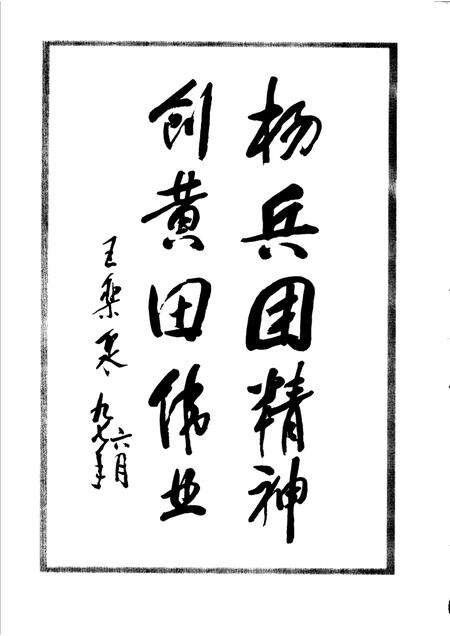 扬兵团精神
创黄田伟业
王樂泉
九七年
六月